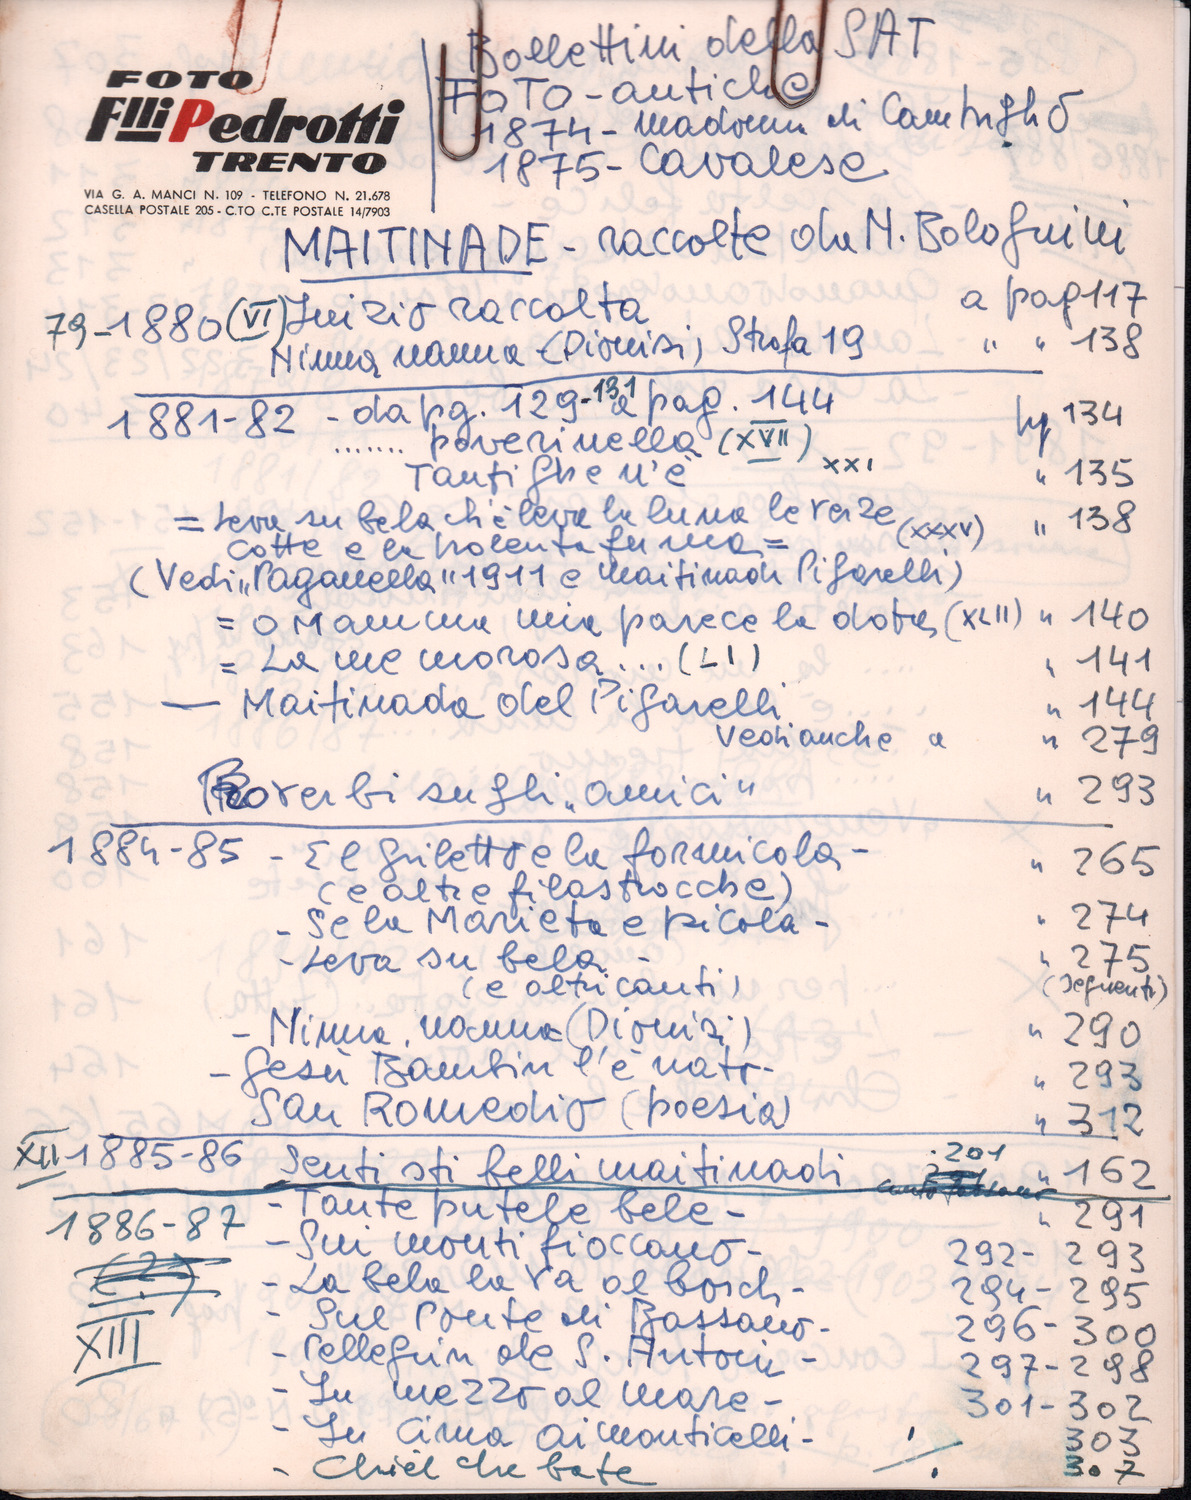 FOTO
Flli Pedrotti
TRENTO
VIA G. A. MANCI N. 109 - TELEFONO N. 21.678
CASELLA POSTALE 205 - C.TO C.TE POSTALE 14/7903
Bollettini della SAT
FOTO - antiche
1874 - madonna di Campiglio
1875 - Cavalese
MAITINADE - raccolte da N. Bolognini
79-1880 (VI) Inizio raccolta a pag 117
Ninna nanna (Dionisi) Strofa 19 " " 138
1881-82 - da pg. 129-131 a pag. 144 pg 134
....... poverinella (XVII)
Tanti ghe n'è XXI " 135
= Leva su bela ch'è leva la luna le verze (XXXV) " 138
cotte e la polenta fuma =
(Vedi "Paganella" 1911 e maitinada Pigarelli)
= O Mamma mia parece la dota (XLII) " 140
= La me morosa ... (LI) " 141
— Maitinada del Pigarelli " 144
Vedi anche a " 279
Proverbi sugli "amici" " 293
1884-85 - El grileto e la formicola - " 265
(e altre filastrocche)
- Se la Marieta e picola - " 274
- Leva su bela - " 275
(e altri canti) (seguenti)
- Ninna, nanna (Dionisi) " 290
- Gesù Bambin l'è nato - " 293
San Romedio (poesia) " 312
XII 1885-86 Senti sti belli maitinadi 201 " 162
1886-87 - Tante putele bele - " 291
- Sui monti fioccano - 292-293
(2?) - La bela la va al bosch - 294-295
- Sul Ponte di Bassano - 296-300
XIII - Pellegrin de S. Antoni - 297-298
- In mezzo al mare - 301-302
- In cima ai monticelli - 303
- Chi el che bate ./. 307